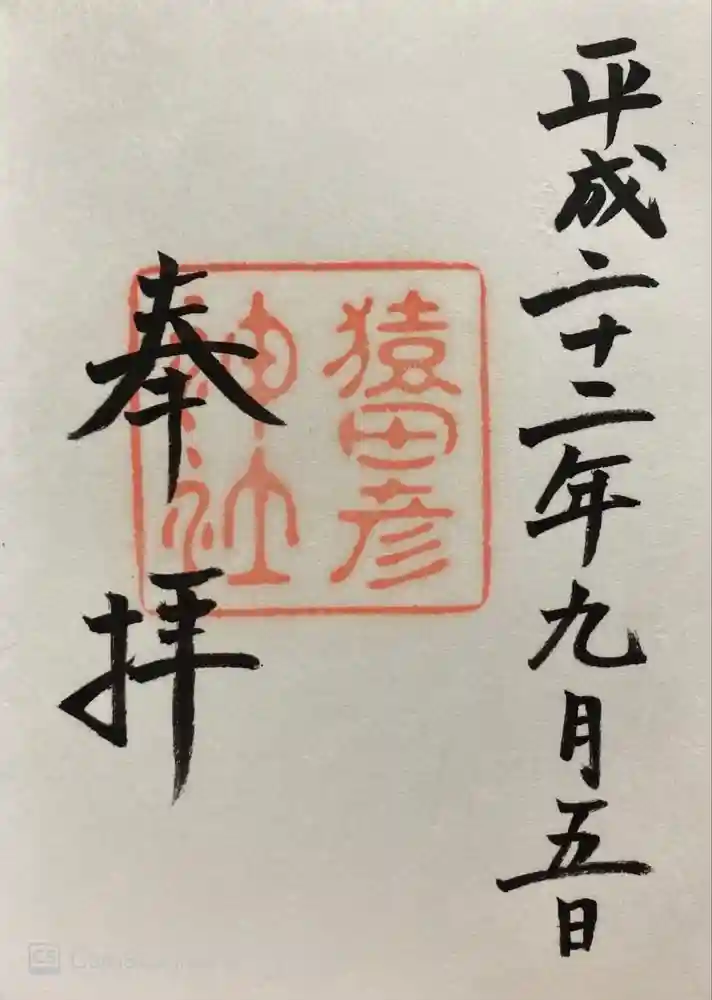 平成二十二年九月五日
猿田彦
神社
奉拝
CS CamScanner